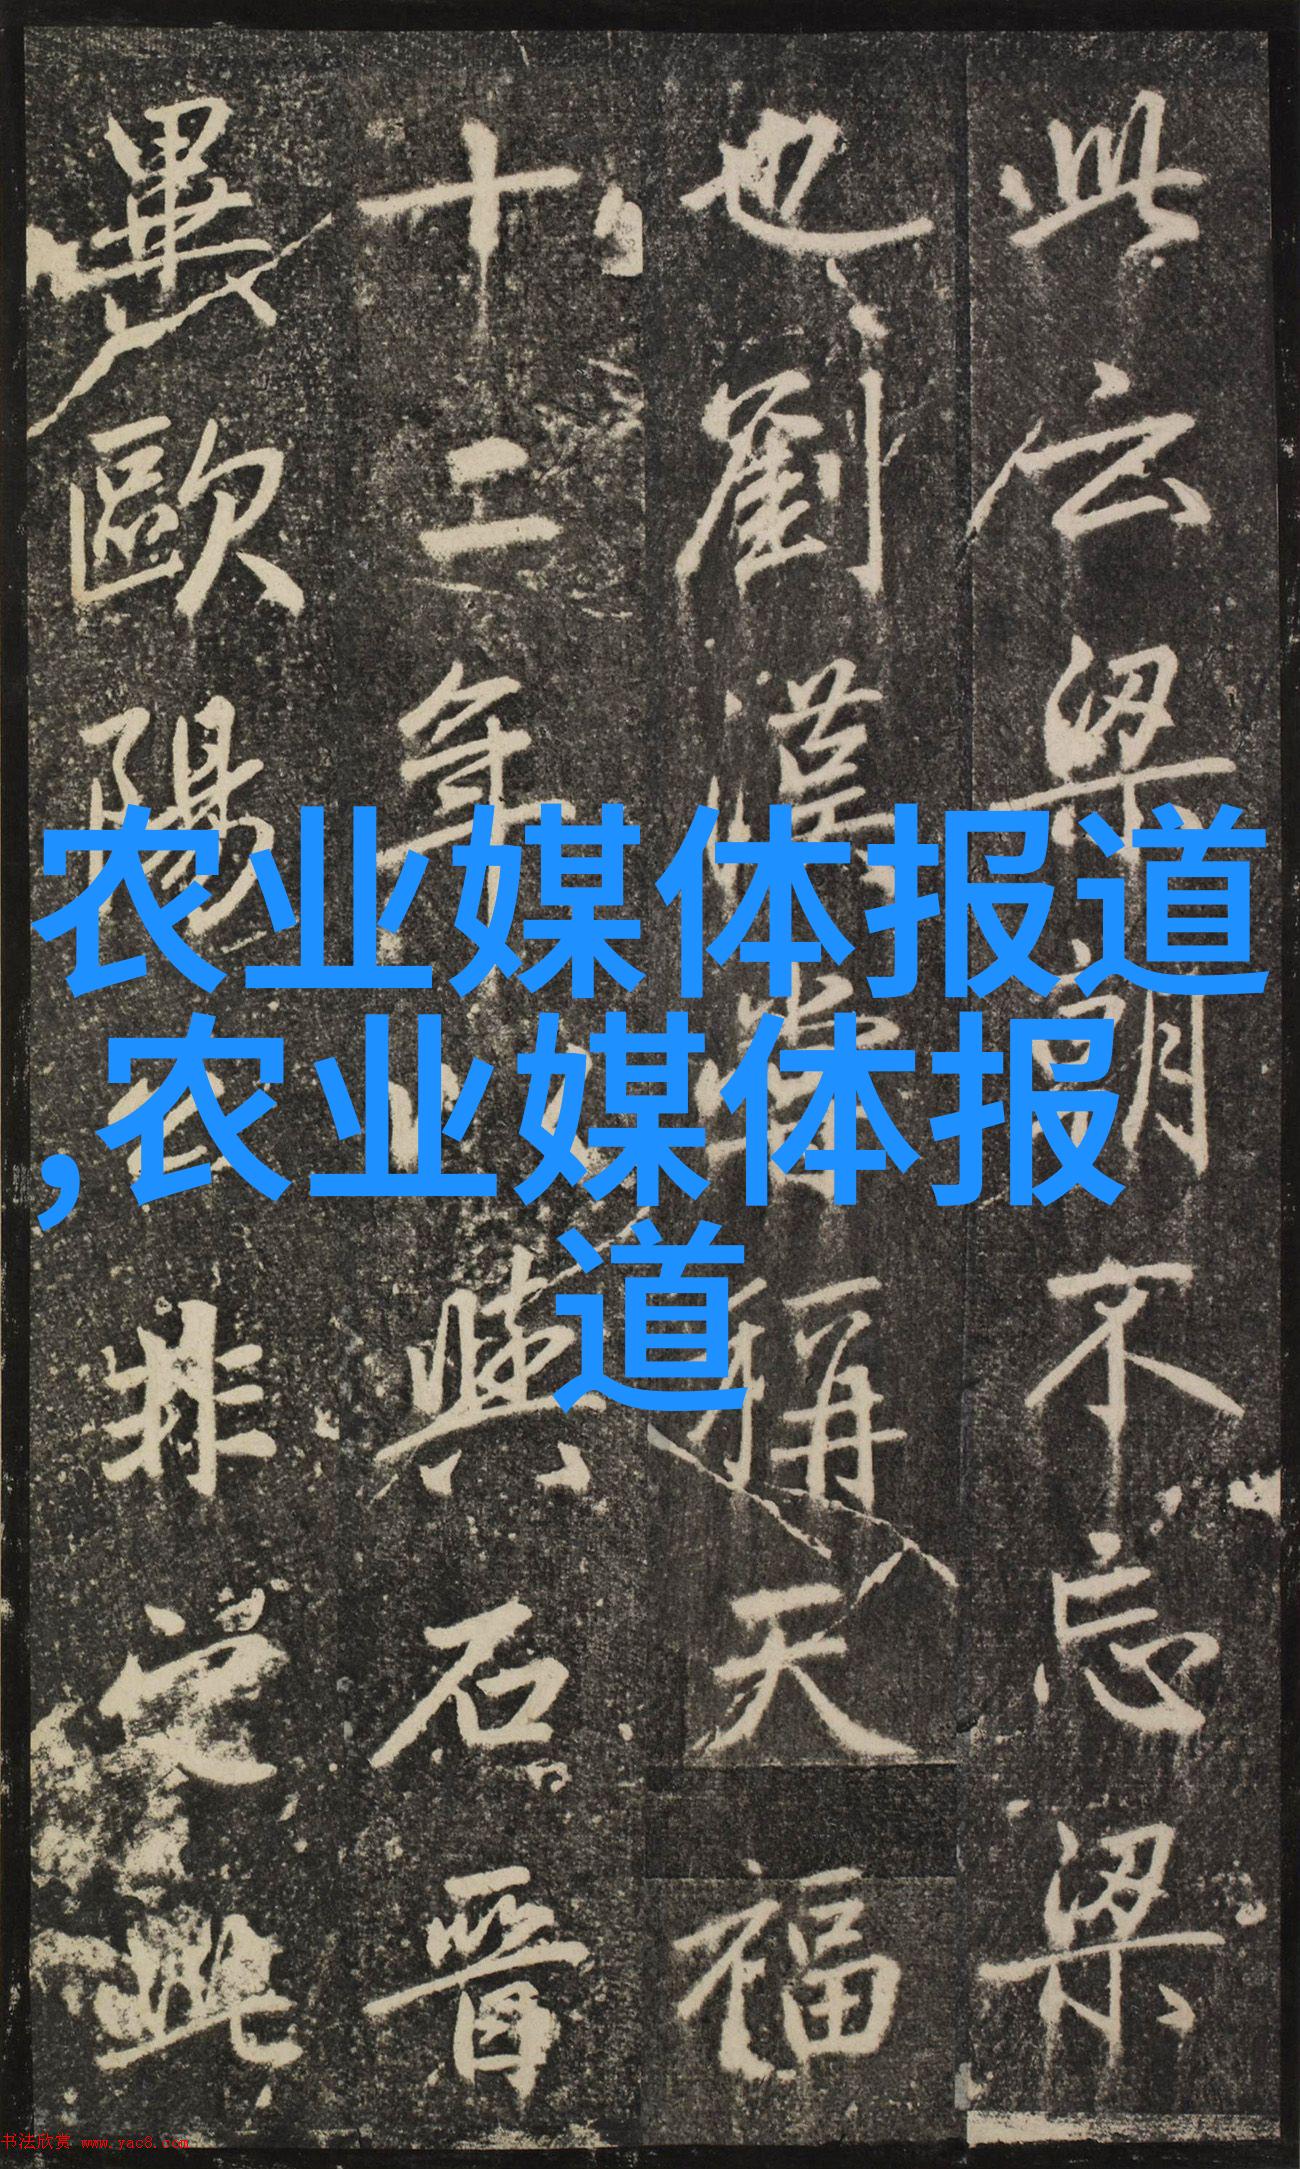 此云梁不忘梁
也劉漢稱天福
十二年與石晉
歐陽公非此
农业媒体报道
,农业媒体报
道
书法欣赏 www.yac8.com